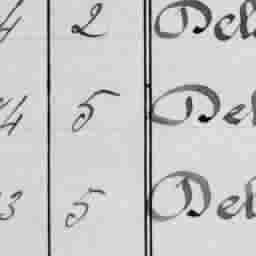 4 2 Del
4 5 Del
3 5 Del